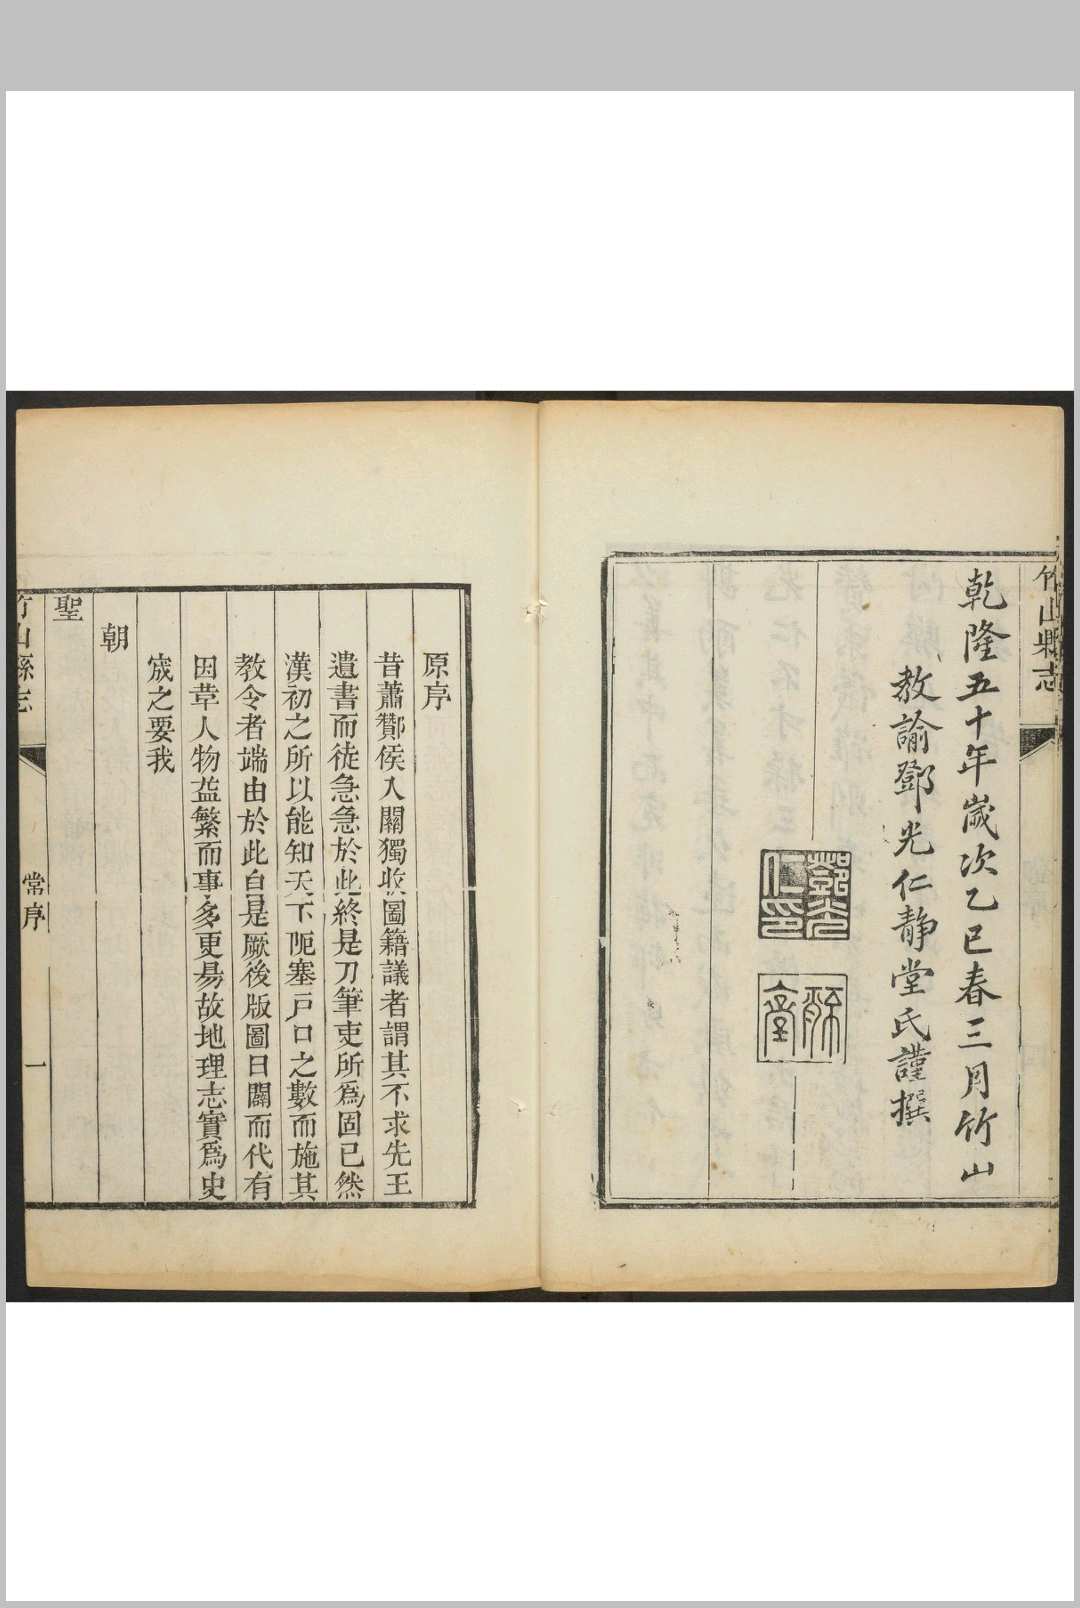 竹山縣志
乾隆五十年歲次乙巳春三月竹山
教諭鄧光仁靜堂氏謹撰
鄧光仁印
原序
昔蕭酇侯入關獨收圖籍議者謂其不求先王
遺書而徒急急於此終是刀筆吏所爲固已然
漢初之所以能知天下阨塞戸口之數而施其
教令者端由於此自是厥後版圖日闢而代有
因革人物葢繁而事多更易故地理志實爲史
宬之要我
朝
聖
竹山縣志
常序
一